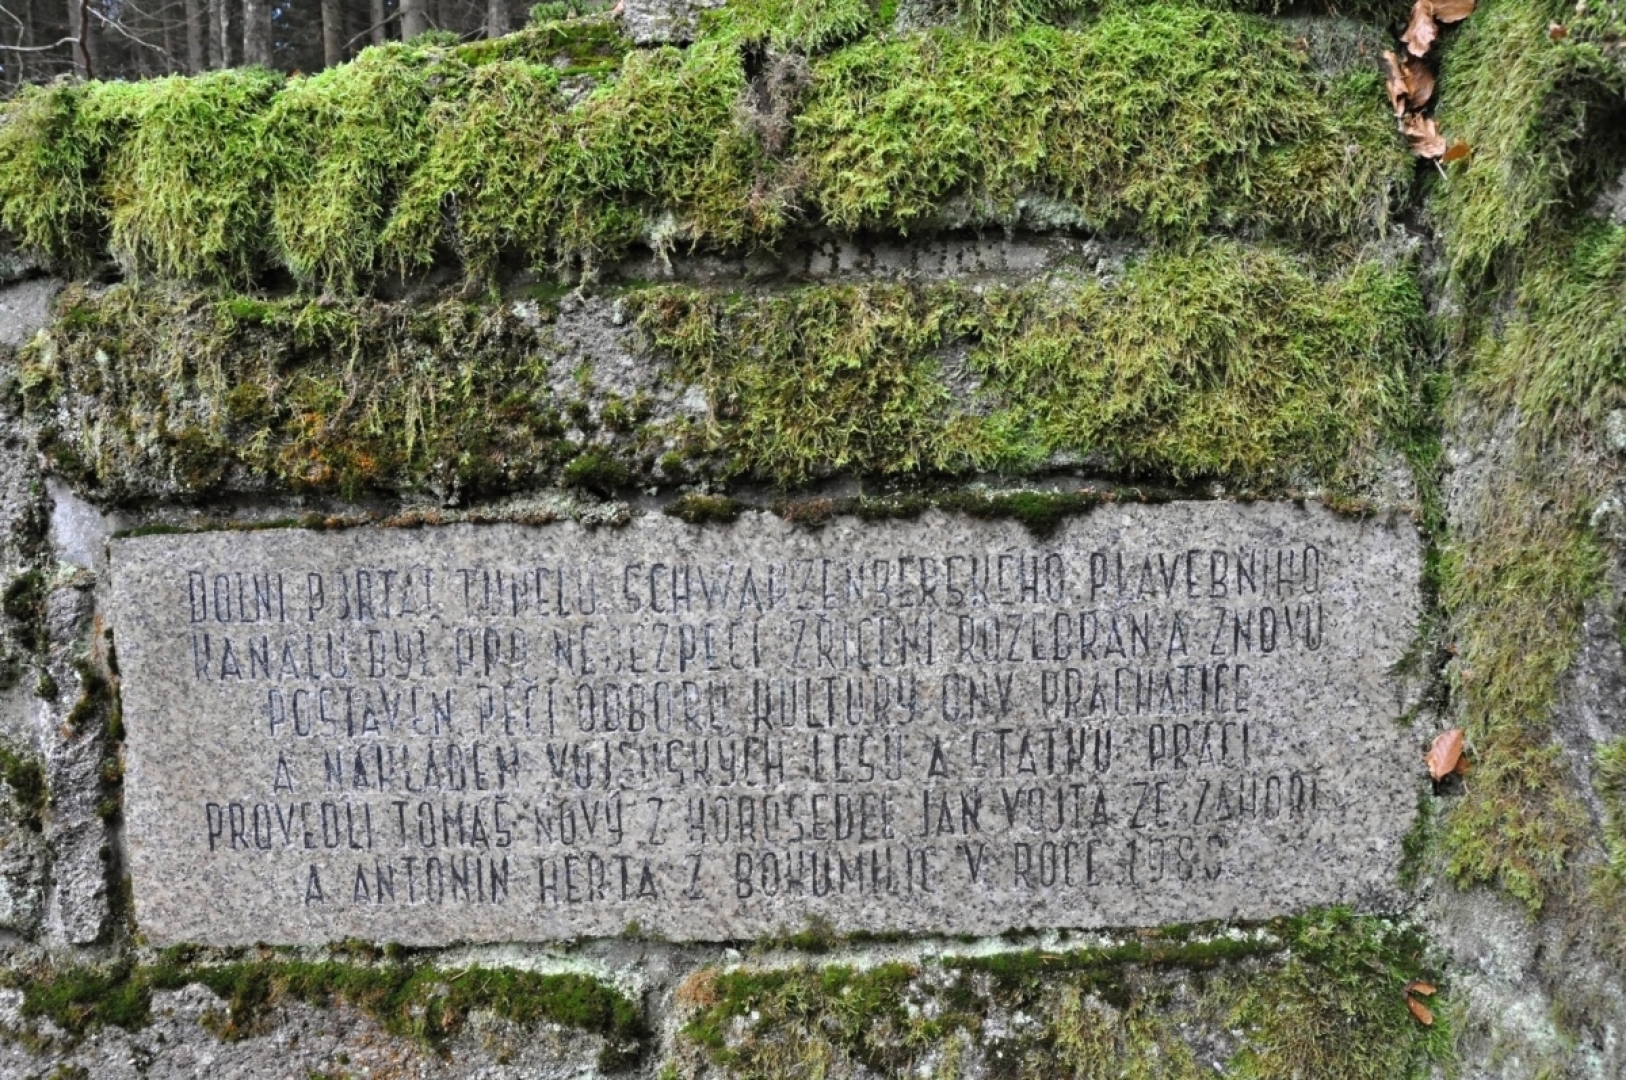 DOLNÍ PORTÁL TUNELU SCHWARZENBERSKÉHO PLAVEBNÍHO
KANÁLU BYL PRO NEBEZPEČÍ ZŘÍCENÍ ROZEBRÁN A ZNOVU
POSTAVEN PÉČÍ ODBORU KULTURY ONV PRACHATICE
A NÁKLADEM VOJENSKÝCH LESŮ A STATKŮ PRÁCI
PROVEDLI TOMÁŠ NOVÝ Z HOROSEDEL JAN VOJTA ZE ZÁHOŘÍ
A ANTONÍN HERTA Z BOHUMILIC V ROCE